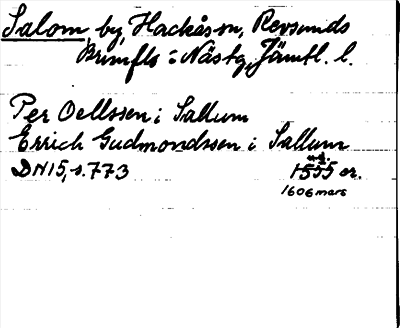 Salom, by, Hackås sn, Revsunds
Brunflo o Näs tg, Jämtl. l.
Per Oellssen i Sallum
Errich Gudmondssen i Sallum
DN15, s. 773 1555 or.
1606 mars